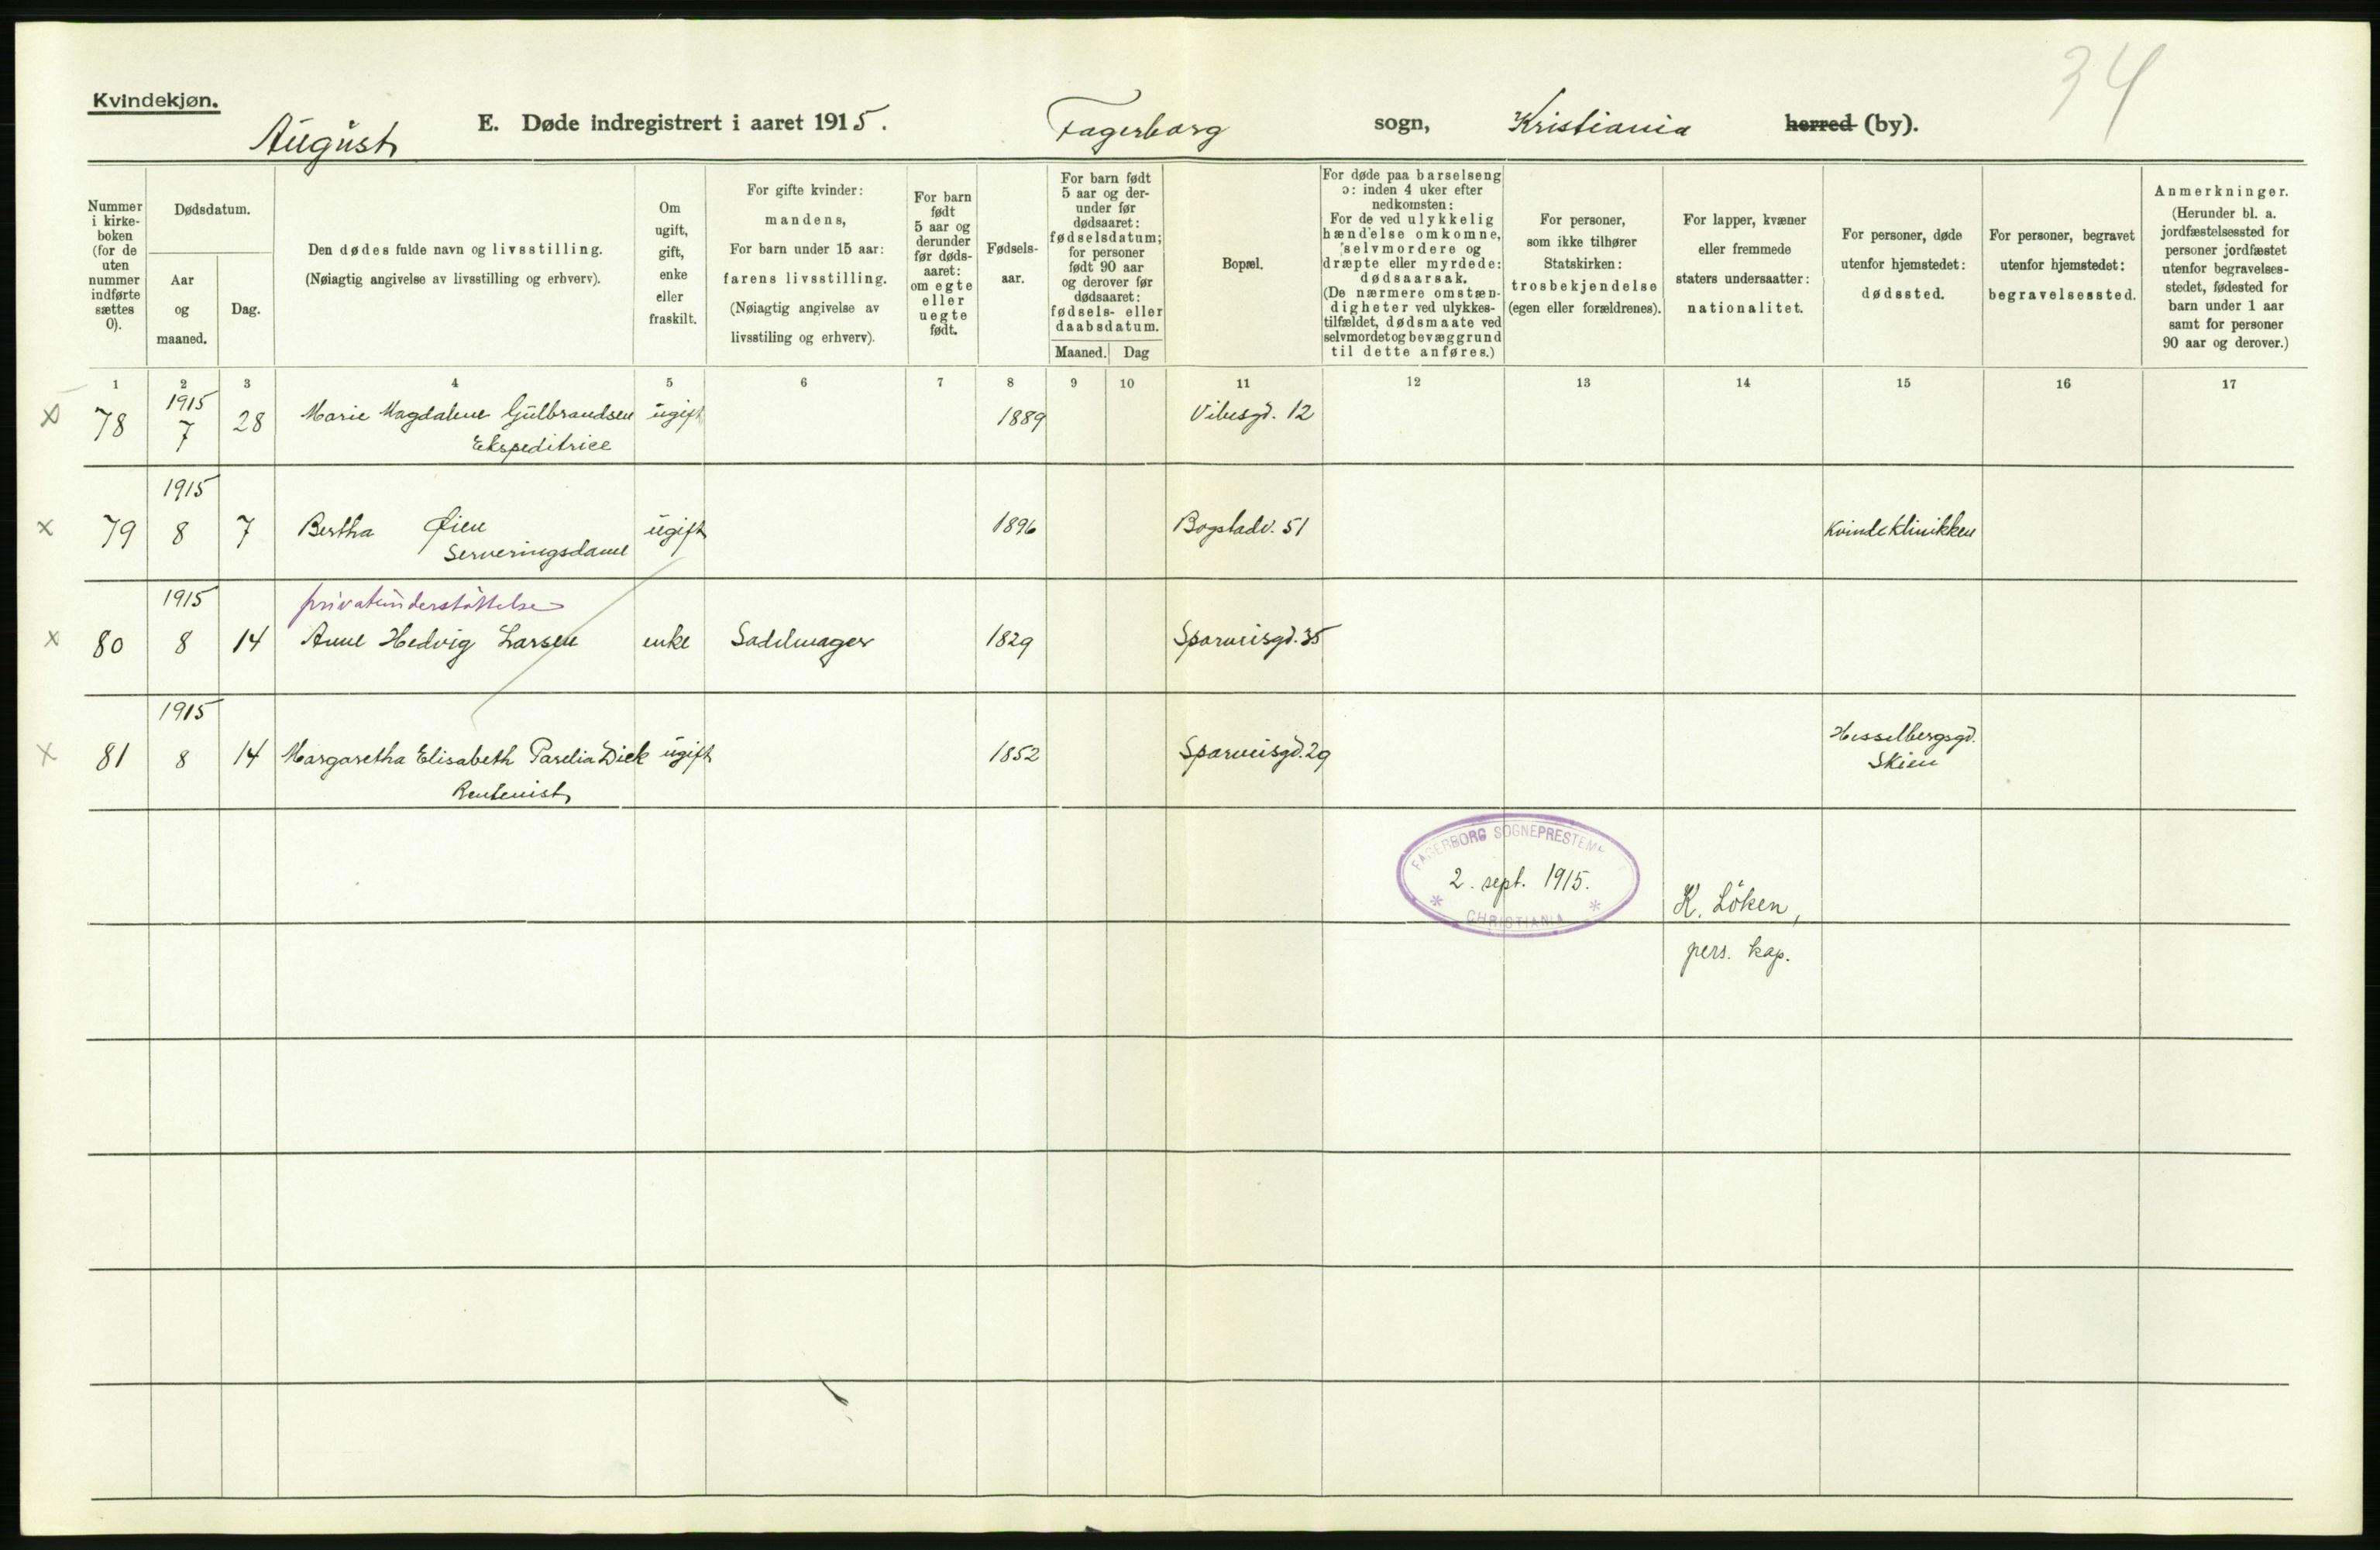 34
Kvindekjøn.
August E. Døde indregistrert i aaret 1915. Fagerborg sogn, Kristiania herred (by).
Nummer i kirke-boken (for de uten nummer indførte sættes 0).
Dødsdatum.
Aar og maaned.
Dag.
Den dødes fulde navn og livsstilling.
(Nøiagtig angivelse av livsstilling og erhverv).
Om ugift, gift, enke eller fraskilt.
For gifte kvinder:
mandens,
For barn under 15 aar:
farens livsstilling.
(Nøiagtig angivelse av
livsstiling og erhverv).
For barn født 5 aar og derunder før døds-aaret: om egte eller uegte født.
Fødsels-aar.
For barn født 5 aar og der-under før dødsaaret: fødselsdatum; for personer født 90 aar og derover før dødsaaret: fødsels- eller daabsdatum.
Maaned. Dag
Bopæl.
For døde paa barselseng
ɔ: inden 4 uker efter
nedkomsten:
For de ved ulykkelig
hændelse omkomne,
selvmordere og
dræpte eller myrdede:
dødsaarsak.
(De nærmere omstæn-
digheter ved ulykkes-
tilfældet, dødsmaate ved
selvmordet og bevæggrund
til dette anføres.)
For personer,
som ikke tilhører
Statskirken:
trosbekjendelse
(egen eller forældrenes).
For lapper, kvæner
eller fremmede
staters undersaatter:
nationalitet.
For personer, døde
utenfor hjemstedet:
dødssted.
For personer, begravet
utenfor hjemstedet:
begravelsessted.
Anmerkninger.
(Herunder bl. a.
jordfæstelsessted for
personer jordfæstet
utenfor begravelses-
stedet, fødested for
barn under 1 aar
samt for personer
90 aar og derover.)
1 2 3 4 5 6 7 8 9 10 11 12 13 14 15 16 17
1915
x 78 7 28 Marie Magdalene Gulbrandsen ugift 1889 Vibesgd. 12
Ekspeditrice
1915
x 79 8 7 Bertha Øien ugift 1896 Bogstadv. 51 Kvindeklinikken
Serveringsdame
1915 privatunderstøttelse
x 80 8 14 Anne Hedvig Larsen enke Sadelmager 1829 Sporveisgd. 35
1915
x 81 8 14 Margaretha Elisabeth Parelia Dick ugift 1852 Sporveisgd. 29 Hesselbergsgd.
Skien
Rentenist
FAGERBORG SOGNEPRESTEM
2. sept. 1915.
* CHRISTIANIA *
K. Löken,
pers. kap.